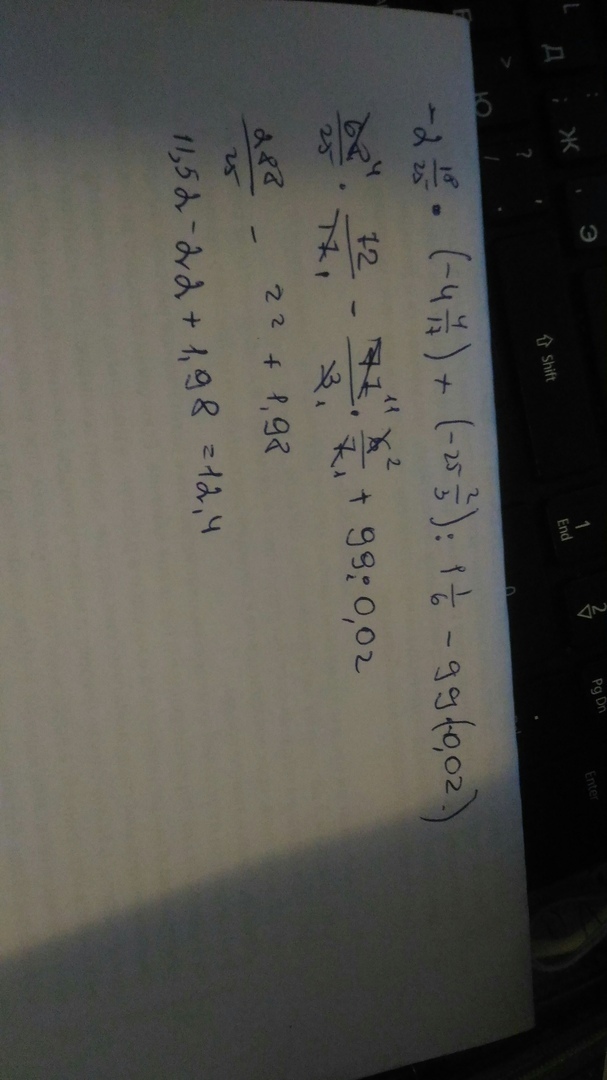 -2 18/25 · (-4 4/17) + (-25 2/3) : 1 1/6 - 99(-0,02)
68 4/25 · 72/17 1 - 77 11/3 1 · 6 2/7 1 + 99:0,02
288/25 - 22 + 1,98
11,52 - 22 + 1,98 = 12,4
Д
Ж
Э
Ю
Shift
1
End
2
Pg Dn
Enter